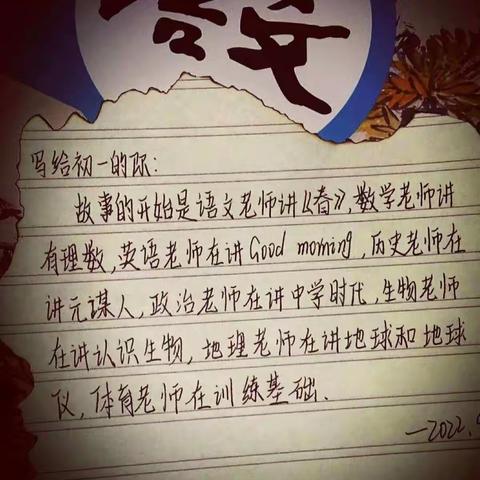 语文
写给初一的你:
故事的开始是语文老师讲《春》,数学老师讲
有理数,英语老师在讲Good morning,历史老师在
讲元谋人,政治老师在讲中学时代,生物老师
在讲认识生物,地理老师在讲地球和地球
仪,体育老师在训练基础.
—2022.